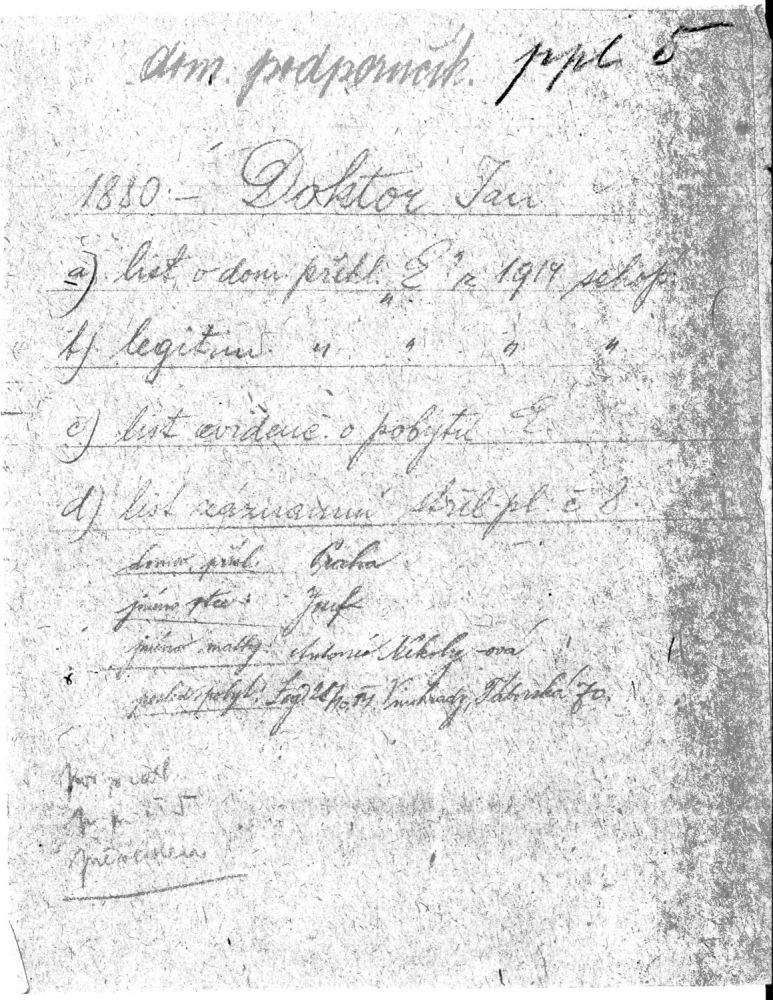 dom. podporučík. ppl 5
1880 – Doktor Jan
a) list o dom. přísl. „E" z 1914 schop.
b) legitim. " " " "
c) list evidenč. o pobytu E.
d) list záznamní střel. pl. č 8.
domov. přísl. Praha
jméno otce: Josef
jméno matky: Antonie -ová
posled. pobyt: Vinohrady, Táborská 70.
5